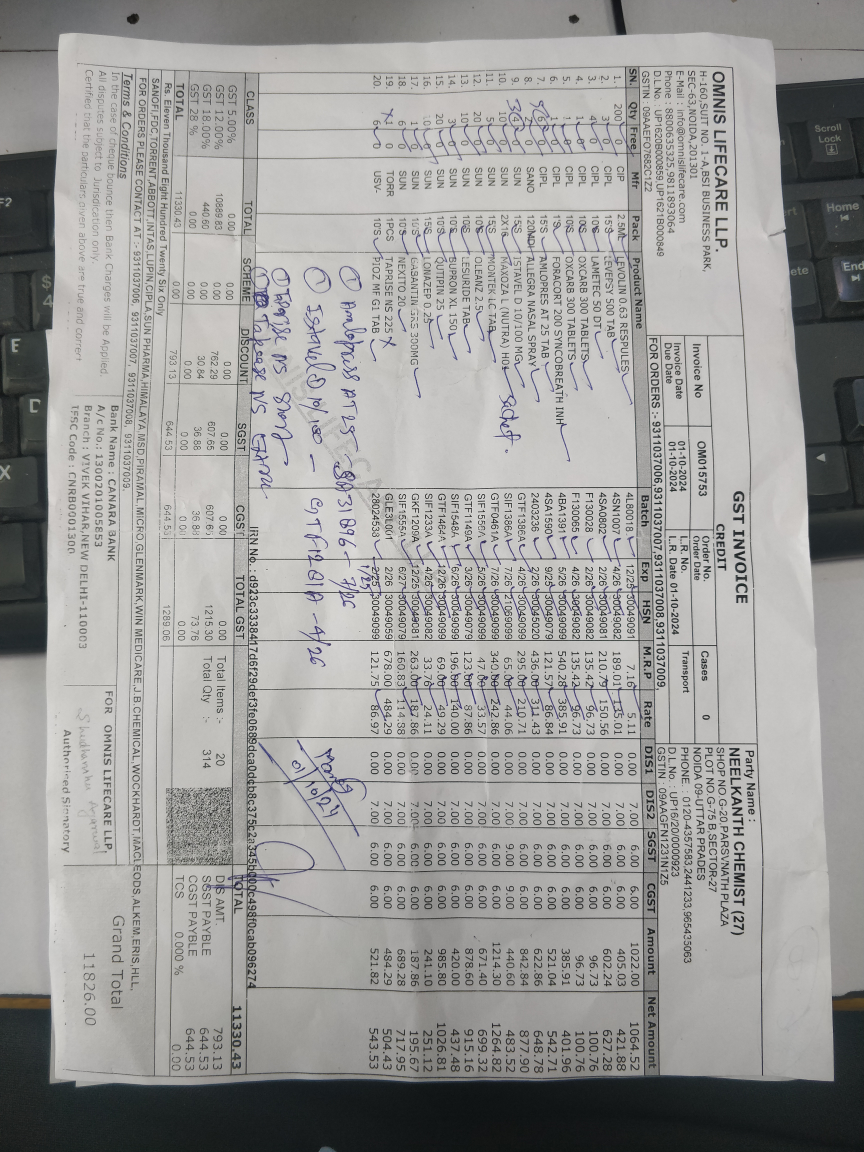 OMNIS LIFECARE LLP.
H-160,SUIT NO. 1-A,BSI BUSINESS PARK,
SEC-63,NOIDA,201301
E-Mail : info@omnislifecare.com
Phone : 8800635325,9811893064
D.L.No : UP1620B000859,UP1621B000849
GSTIN : 09AAEFO7682C1Z2
GST INVOICE
CREDIT
Invoice No OM015753 Order No. Cases 0
Order Date
Invoice Date 01-10-2024 L.R. No. Transport
Due Date 01-10-2024 L.R. Date 01-10-2024
FOR ORDERS :- 9311037006,9311037007,9311037008,9311037009
Party Name :
NEELKANTH CHEMIST (27)
SHOP NO.G-20,PARSVNATH PLAZA
PLOT NO.G-75 B,SECTOR-27
NOIDA 09-UTTAR PRADES
PHONE : 0120-4357583,2441233,965435063
D.L.No. : UP16/20/0000923
GSTIN : 09AAGFN1231N1Z5
SN. Qty Free Mfr Pack Product Name Batch Exp HSN M.R.P Rate DIS1 DIS2 SGST CGST Amount Net Amount
1. 200 CIP 2.5ML LEVOLIN 0.63 RESPULES 4LB0018 12/25 30049091 7.16 5.11 0.00 7.00 6.00 6.00 1022.00 1064.52
2. 3 0 CIPL 15'S LEVEPSY 500 TAB 4SN1007 4/26 30049082 189.01 135.01 0.00 7.00 6.00 6.00 405.03 421.88
3. 4 0 CIPL 10'S LAMETEC 50 DT 4SA0802 2/26 30049081 210.79 150.56 0.00 7.00 6.00 6.00 602.24 627.28
4. 1 0 CIPL 10'S OXCARB 300 TABLETS F130028 2/26 30049082 135.42 96.73 0.00 7.00 6.00 6.00 96.73 100.76
5. 1 0 CIPL 10'S OXCARB 300 TABLETS F130068 4/26 30049082 135.42 96.73 0.00 7.00 6.00 6.00 96.73 100.76
6. 1 0 CIPL 1'S FORACORT 200 SYNCOBREATH INH 4BA1391 5/26 30049099 540.28 385.91 0.00 7.00 6.00 6.00 385.91 401.96
7. 6 0 CIPL 15'S AMLOPRES AT 25 TAB 4SA1590 9/25 30049079 121.57 86.84 0.00 7.00 6.00 6.00 521.04 542.71
8. 2 0 SANO 120MD ALLEGRA NASAL SPRAY 2403236 2/26 30045020 436.00 311.43 0.00 7.00 6.00 6.00 622.86 648.78
9. 4 0 SUN 15'S ISTAVEL 10/100 MG GTF1386A 4/26 30049099 295.00 210.71 0.00 7.00 6.00 6.00 842.84 877.90
10. 10 0 SUN MAXOZA L (NUTRA) sachet. SIF1386A 7/26 21069099 65.00 44.06 0.00 7.00 9.00 9.00 440.60 483.52
11. 5 0 SUN 15'S MONTEK-LC TAB GTF0461A 7/26 30049099 340.00 242.86 0.00 7.00 6.00 6.00 1214.30 1264.82
12. 20 0 SUN 10'S OLEANZ 2.5 SIF1556A 5/26 30049099 47.00 33.57 0.00 7.00 6.00 6.00 671.40 699.32
13. 10 0 SUN 10'S LESURIDE TAB GTF1149A 3/26 30049079 123.00 87.86 0.00 7.00 6.00 6.00 878.60 915.16
14. 3 0 SUN 10'S BUPRON XL 150 SIF1548A 6/26 30049099 196.00 140.00 0.00 7.00 6.00 6.00 420.00 437.48
15. 20 0 SUN 10'S QUTIPIN 25 GTF1464A 12/26 30049099 69.00 49.29 0.00 7.00 6.00 6.00 985.80 1026.81
16. 10 0 SUN 15'S LONAZEP 0.25 SIF1233A 4/26 30049082 33.76 24.11 0.00 7.00 6.00 6.00 241.10 251.12
17. 1 0 SUN 10'S GABANTIN 300MG GKF1209A 12/25 30049081 263.00 187.86 0.00 7.00 6.00 6.00 187.86 195.67
18. 6 0 SUN 10'S NEXITO 20 SIF1555A 6/27 30049079 160.83 114.88 0.00 7.00 6.00 6.00 689.28 717.95
19. 1 0 TORR 1PCS TAPRISE NS 225 GLE3L001 2/26 30049059 678.00 484.29 0.00 7.00 6.00 6.00 484.29 504.43
20. 6 0 USV- 10'S PIOZ MF G1 TAB 28024538 2/25 30049099 121.75 86.97 0.00 7.00 6.00 6.00 521.82 543.53
① Amlopress AT 25 - SA31896 - 7/26
① Istavel D 10/100 - GTF1291A - 4/26
① NS short
NS Extra
01/10/24
IRN No.
CLASS TOTAL SCHEME DISCOUNT SGST CGST TOTAL GST TOTAL 11330.43
GST 5.00% 0.00 0.00 0.00 0.00 0.00 Total Items :- 20 DIS AMT. 793.13
GST 12.00% 10889.83 762.29 607.65 607.65 1215.30 Total Qty :- 314 SGST PAYBLE 644.53
GST 18.00% 440.60 30.84 36.88 36.88 73.76 CGST PAYBLE 644.53
GST 28 % 0.00 0.00 0.00 0.00 0.00 TCS 0.000 % 0.00
TOTAL 11330.43 0.00 793.13 644.53 644.53 1289.06
Rs. Eleven Thousand Eight Hundred Twenty Six Only
SANOFI,FDC,TORRENT,ABBOTT,INTAS,LUPIN,CIPLA,SUN PHARMA,HIMALAYA,MSD,PIRAMAL,MICRO,GLENMARK,WIN MEDICARE,J.B.CHEMICAL,WOCKHARDT,MACLEODS,ALKEM,ERIS,HLL,
FOR ORDERS PLEASE CONTACT AT :- 9311037006, 9311037007, 9311037008, 9311037009
Grand Total
11826.00
Terms & Conditions
In the case of cheque bounce then Bank Charges will be Applied.
All disputes subject to Jurisdication only.
Certified that the particulars given above are true and correct
Bank Name : CANARA BANK
A/c No.: 1300201005853
Branch : VIVEK VIHAR,NEW DELHI-110003
IFSC Code : CNRB0001300
FOR OMNIS LIFECARE LLP.
Authorised Signatory
Scroll
Lock
Home
End